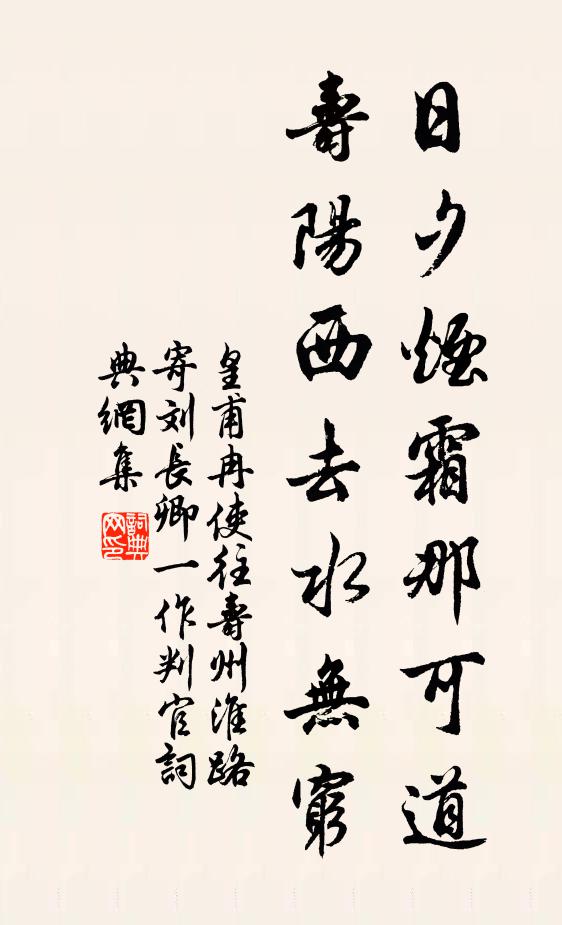 日夕煙霜那可道
壽陽西去水無窮
皇甫冉使往壽州淮路
寄刘長卿一作判官詞
典網集
詞典
网印